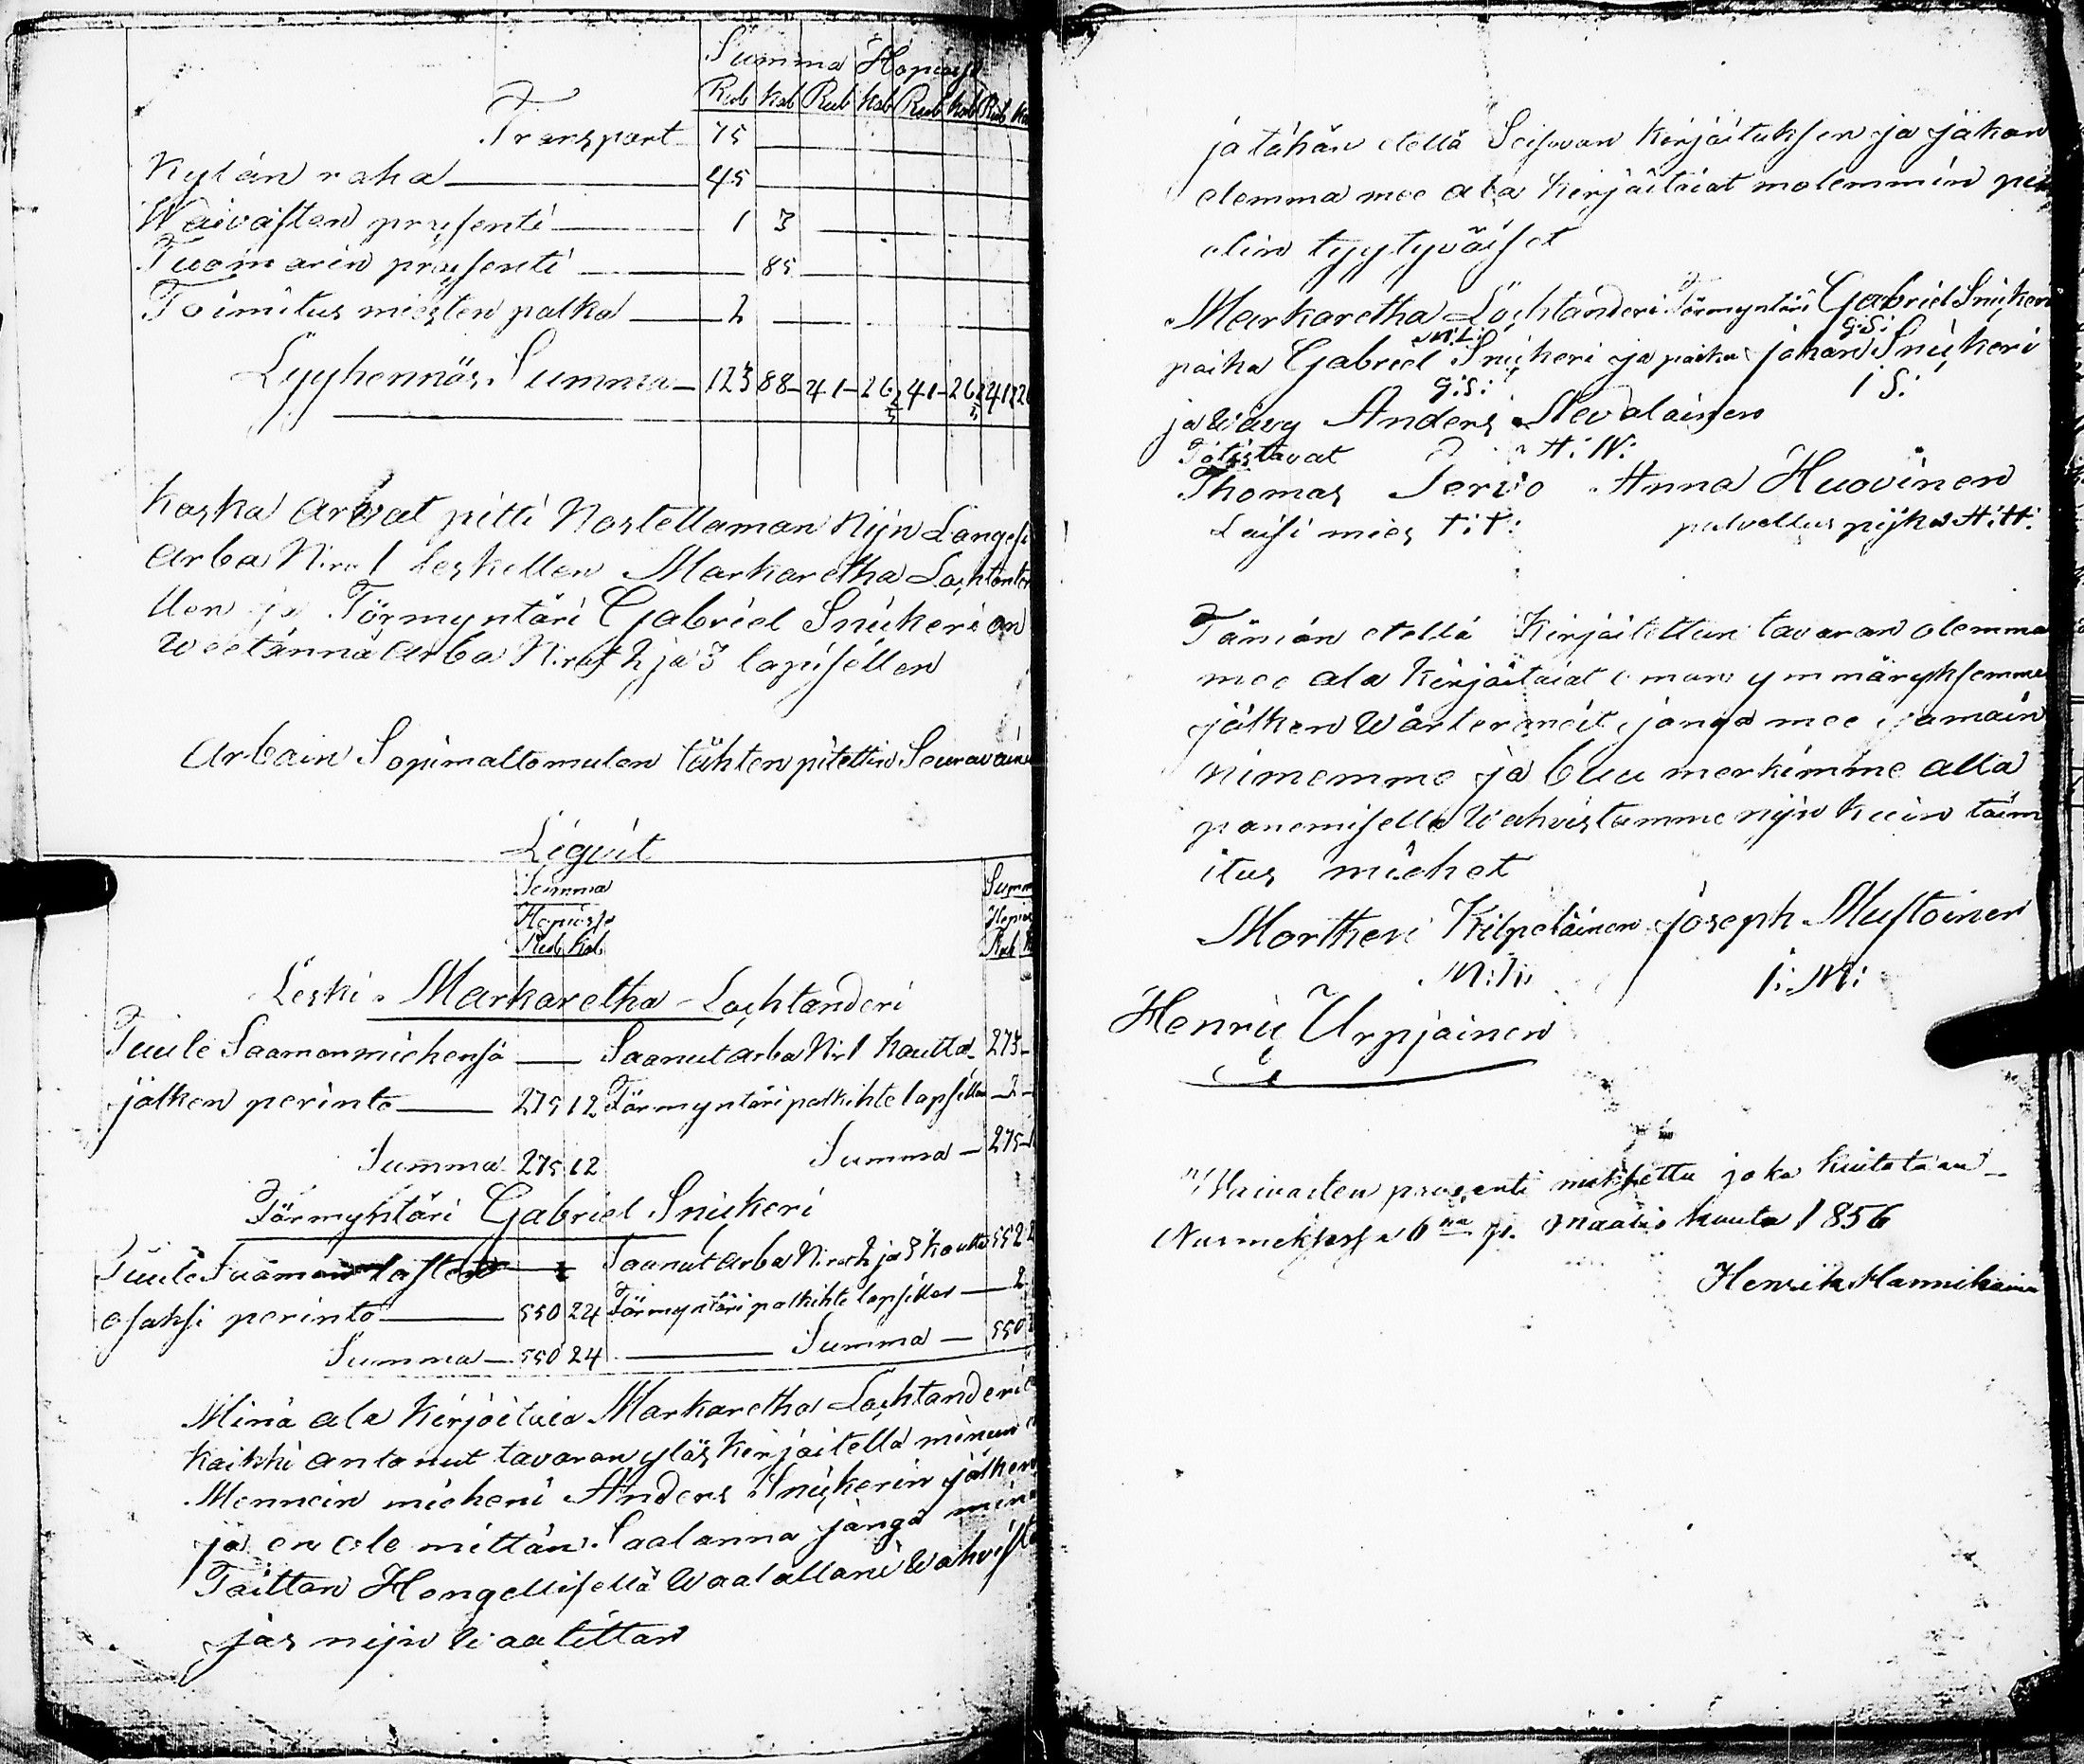 Summa Hopiasa
Rub Kob Rub Kob Rub Kob Rub
Transpart 75
Kylän raha 45
Waivasten prosenti 1 3
Tuomarin prosenti 85
Toimitus miesten palka 2
Lyyhennäs Summa 123 88 41 26 41 26 41
Koska arwat pitti Nostettaman Nijn Langesi
arba N:ro 1 leskellen Markaretha Lochtander
llen ja Förmyntäri Gabriel Snickeri on
Weetännä arba N:rot 2 ja 3 lapisellen
Arbain Sopimattomuten tähten pitettin Seuravain
Liqvit
Summa
Hopiasa
Rub Kob
Summ
Rub
Leski Markaretha Lochtanderi
Tuule Saaman miehensä Saanut arba N:r 1 kautta 273
jälken perinto 275 12 Förmyntäri palkihte lapsillen 2
Summa 275 12 Summa 275
Förmyntäri Gabriel Snickeri
Tuule Suaman lasten Saanut arba N:rot 2 ja 3 kautta 552
osaksi perinto 550 24 Förmyntäri palkihte lapsillen 2
Summa 550 24 Summa 550
Minä ala Kirjoitaia Markaretha Lochtanderi
Kaikki antanut tavaran ylös kirjoitella minun
Mennein mieheni Anders Snickerin jälken
ja en ole mittän Saalanna janga min
Taittan Hengellisellä Waalallani Wahvist
jos nijn Waatittan
ja tähän etellä Seisovan Kirjoituksen ja jakon
olemma mee ala Kirjoitaiat molemmin puo
olin tyytyväiset
Markaretha Lochtanderi Förmyntäri Gabriel Snickeri
M:L: G:S:
poika Gabriel Snickeri ja poika Johan Snickeri
G:S: I S:
ja Wävy Anders Nevalainen
Totistavat A:N:
Thomas Tervo Anna Huovinen
Laisi mies T:T: palvellus pijka A:H:
Tämän etellä Kirjoitettun tavaran olemma
mee ala Kirjoitaiat oman ymmäryksemme
jälken Wärteranneit, janga mee samain
nimemme ja buu merkimme alla
panemisella Wahvistamme nijn kuin toim
itus miehet
Mortheni Kilpeläinen Joseph Mustoinen
M:K: J:M:
Henric Urpjainen
Waivasten prosenti maksettu joka kuitataan
Nurmeksesa 6na p. Maalis kuuta 1856
Henrik Hannikainen